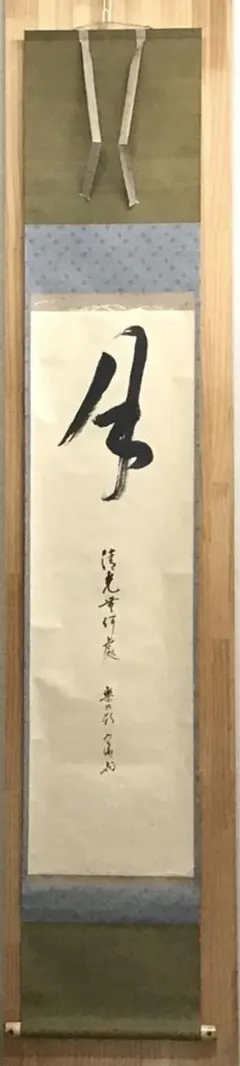 月
清光無何處